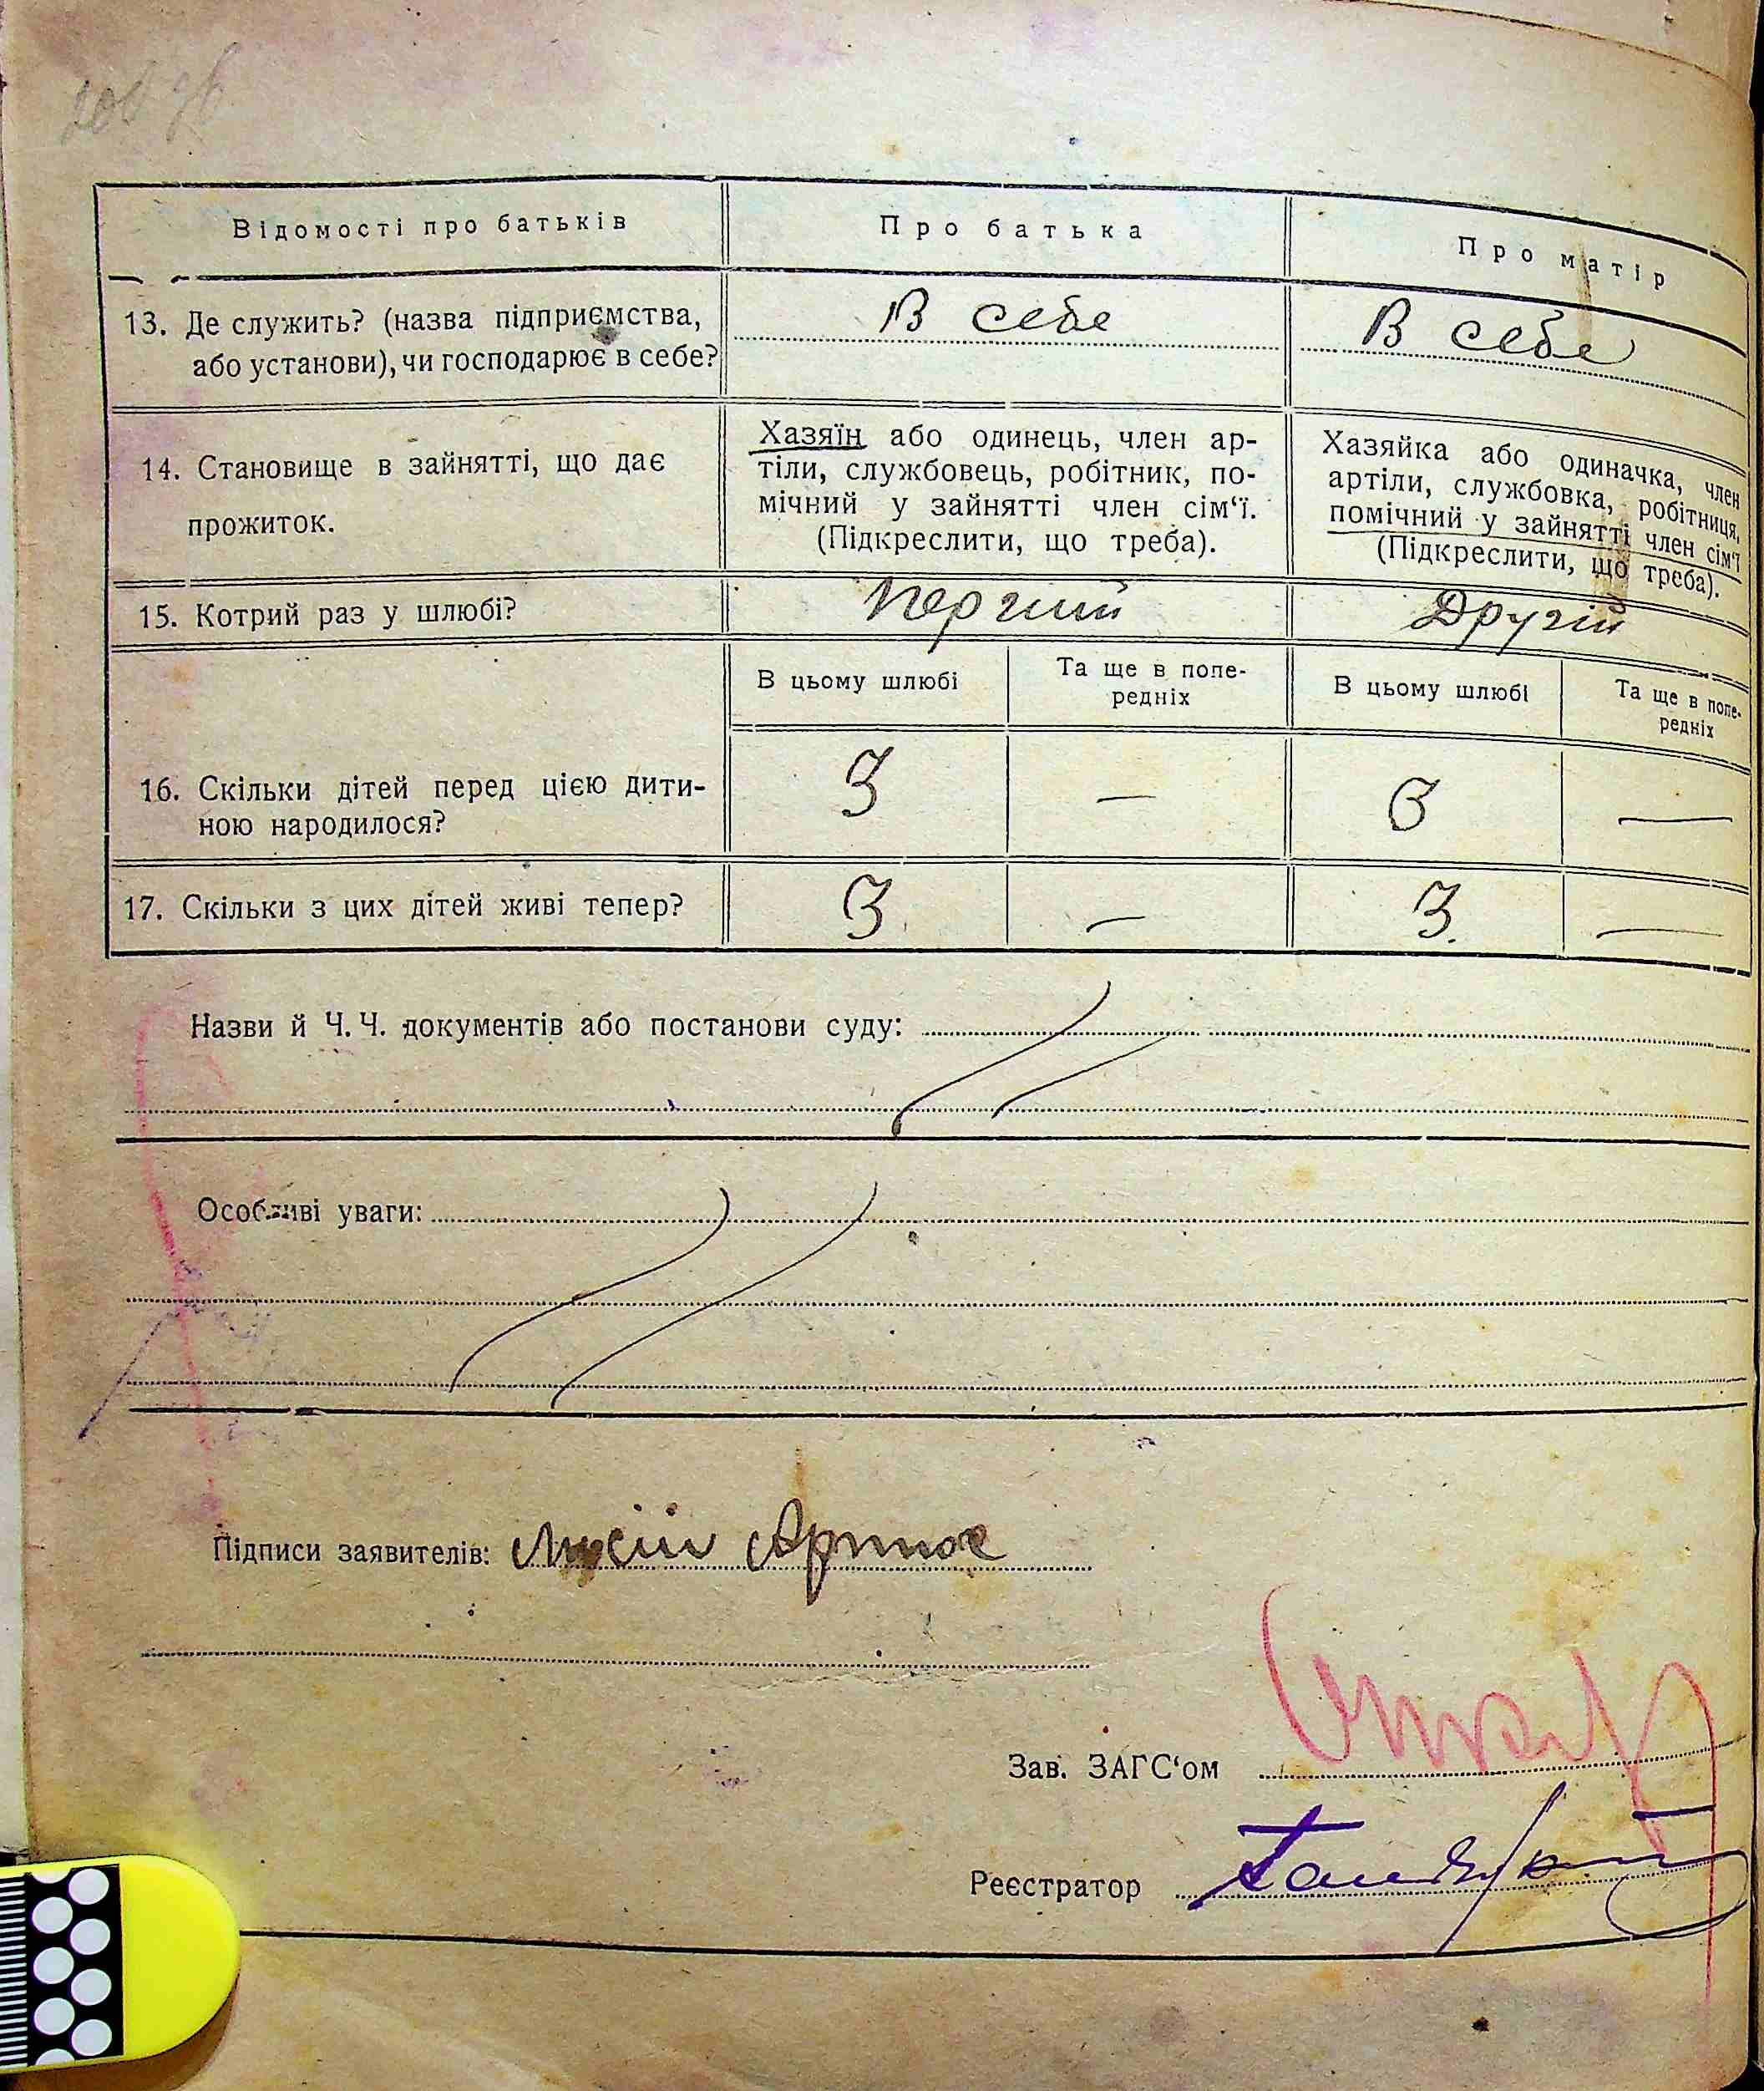 Відомості про батьків
Про батька
Про матір
13. Де служить? (назва підприємства,
або установи), чи господарює в себе?
В себе
В себе
14. Становище в зайнятті, що дає
прожиток.
Хазяїн або одинець, член ар-
тіли, службовець, робітник, по-
мічний у зайнятті член сім‘ї.
(Підкреслити, що треба).
Хазяйка або одиначка, член
артіли, службовка, робітниця,
помічний у зайнятті член сім‘ї
(Підкреслити, що треба).
15. Котрий раз у шлюбі?
Перший
Другій
В цьому шлюбі
Та ще в попе-
редніх
В цьому шлюбі
Та ще в попе-
редніх
16. Скільки дітей перед цією дити-
ною народилося?
3
—
3
—
17. Скільки з цих дітей живі тепер?
3
—
3.
—
Назви й Ч. Ч. документів або постанови суду:
Особливі уваги:
Підписи заявителів:
Зав. ЗАГС‘ом
Реєстратор